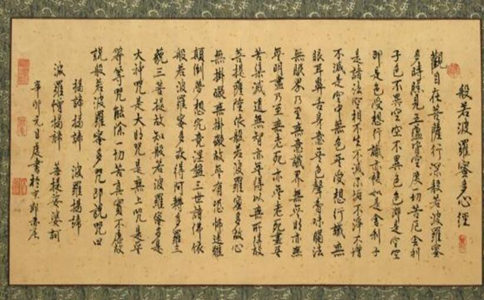 般若波羅蜜多心經
觀自在菩薩行深般若波羅蜜
多時照見五蘊皆空度一切苦厄舍利
子色不異空空不異色色即是空空
即是色受想行識亦復如是舍利子
是諸法空相不生不滅不垢不淨不增
不減是故空中無色無受想行識無
眼耳鼻舌身意無色聲香味觸法
無眼界乃至無意識界無無明亦無
無明盡乃至無老死亦無老死盡無
苦集滅道無智亦無得以無所得故
菩提薩埵依般若波羅蜜多故心
無掛礙無掛礙故無有恐怖遠離
顛倒夢想究竟涅盤三世諸佛依
般若波羅蜜多故得阿耨多羅三
藐三菩提故知般若波羅蜜多是
大神咒是大明咒是無上咒是無
等等咒能除一切苦真實不虛故
說般若波羅蜜多咒即說咒曰
揭諦揭諦 波羅揭諦
波羅僧揭諦 菩提娑婆訶
辛卯元月 書於